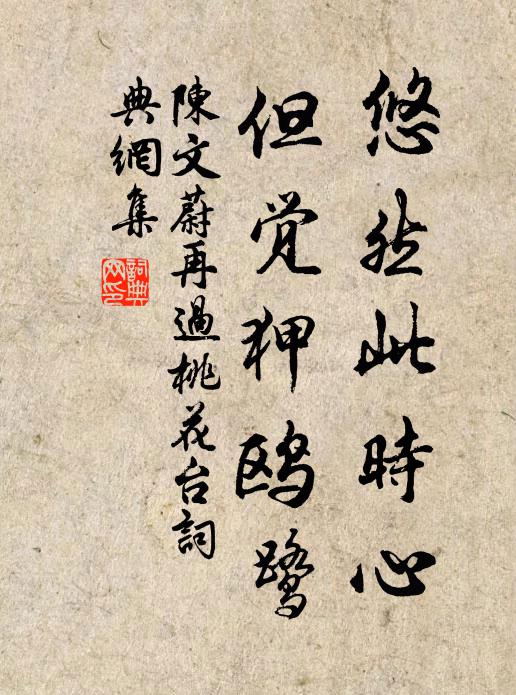 悠然此時心
但觉狎鸥鹭
陳文蔚再過桃花台詞
典網集
詞典網印